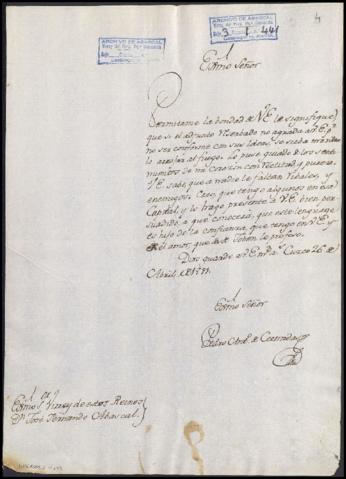 ARCHIVO DE ABASCAL
ARCHIVO DE ABASCAL
3 1 441
4
Exmo Señor
Permitame la bondad de V.E. le signifique
que si el adjunto no agrada a V.E. p.r
no ser conforme con sus ideas, se sirva
lo arrojar al fuego. Lo puse guiado de los senti-
mientos de mi corazon con rectitud y pureza.
V.E. sabe que a nadie le faltan rivales, y
enemigos. Creo que tengo algunos en esa
Capital, y lo hago presente a V.E. bien per-
suadido, a que conocerá, que este lenguage
es hijo de la confianza, que tengo en V.E. y
el amor, que le profeso.
Dios guarde a V.E. m.s a.s Cuzco 26 de
Abril de
Exmo Señor
Pedro Ant. de Cernadas
Exmo S.r Virrey de estos Reynos
D.n José Fernando Abascal.